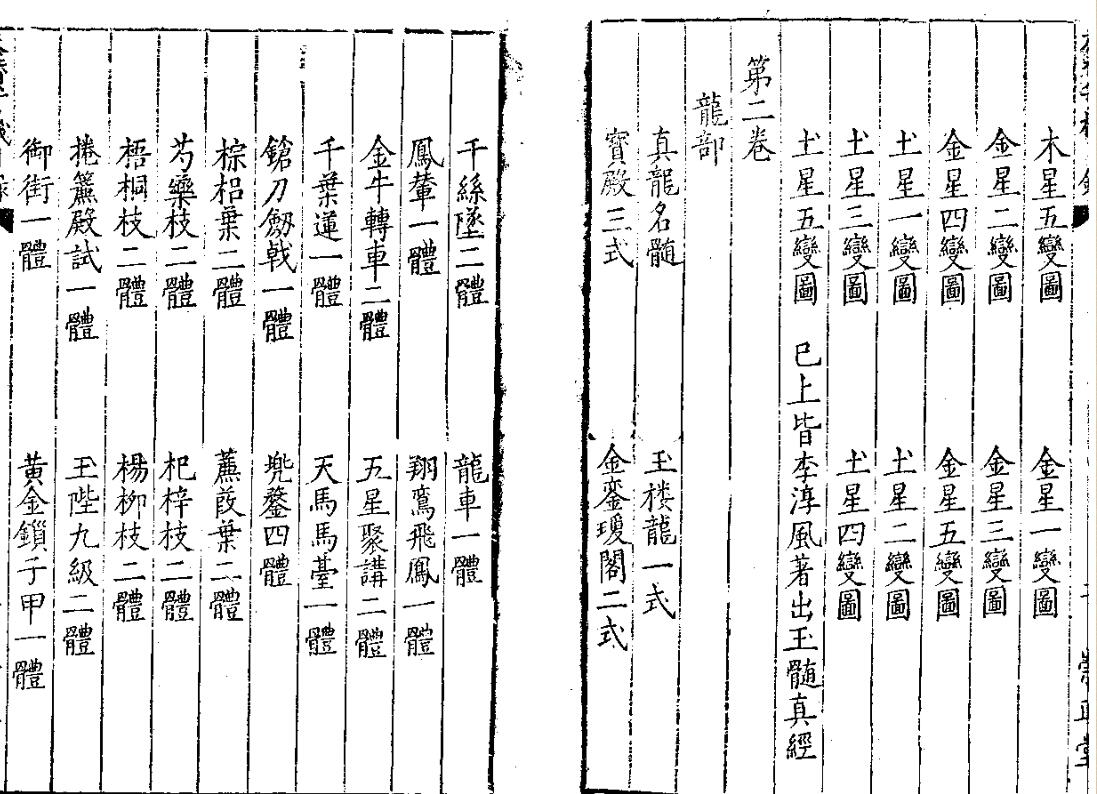 木星五變圖　金星一變圖
金星二變圖　金星三變圖
金星四變圖　金星五變圖
土星一變圖　土星二變圖
土星三變圖　土星四變圖
土星五變圖　已上皆李淳風著出玉髓真經
第二卷
龍部
真龍名髓　玉楼龍一式
寳殿三式　金鑾瓊閣二式
千絲墜二體　龍車一體
鳳輦一體　翔鸞飛鳳一體
金牛轉車二體　五星聚講二體
千葉蓮一體　天馬馬臺一體
鎗刀劔戟一體　兠鍪四體
棕梠葉二體　蕉葭葉二體
芍藥枝二體　杞梓枝二體
梧桐枝二體　楊柳枝二體
捲簾殿試一體　玉陛九級二體
御街一體　黃金鎖子甲一體